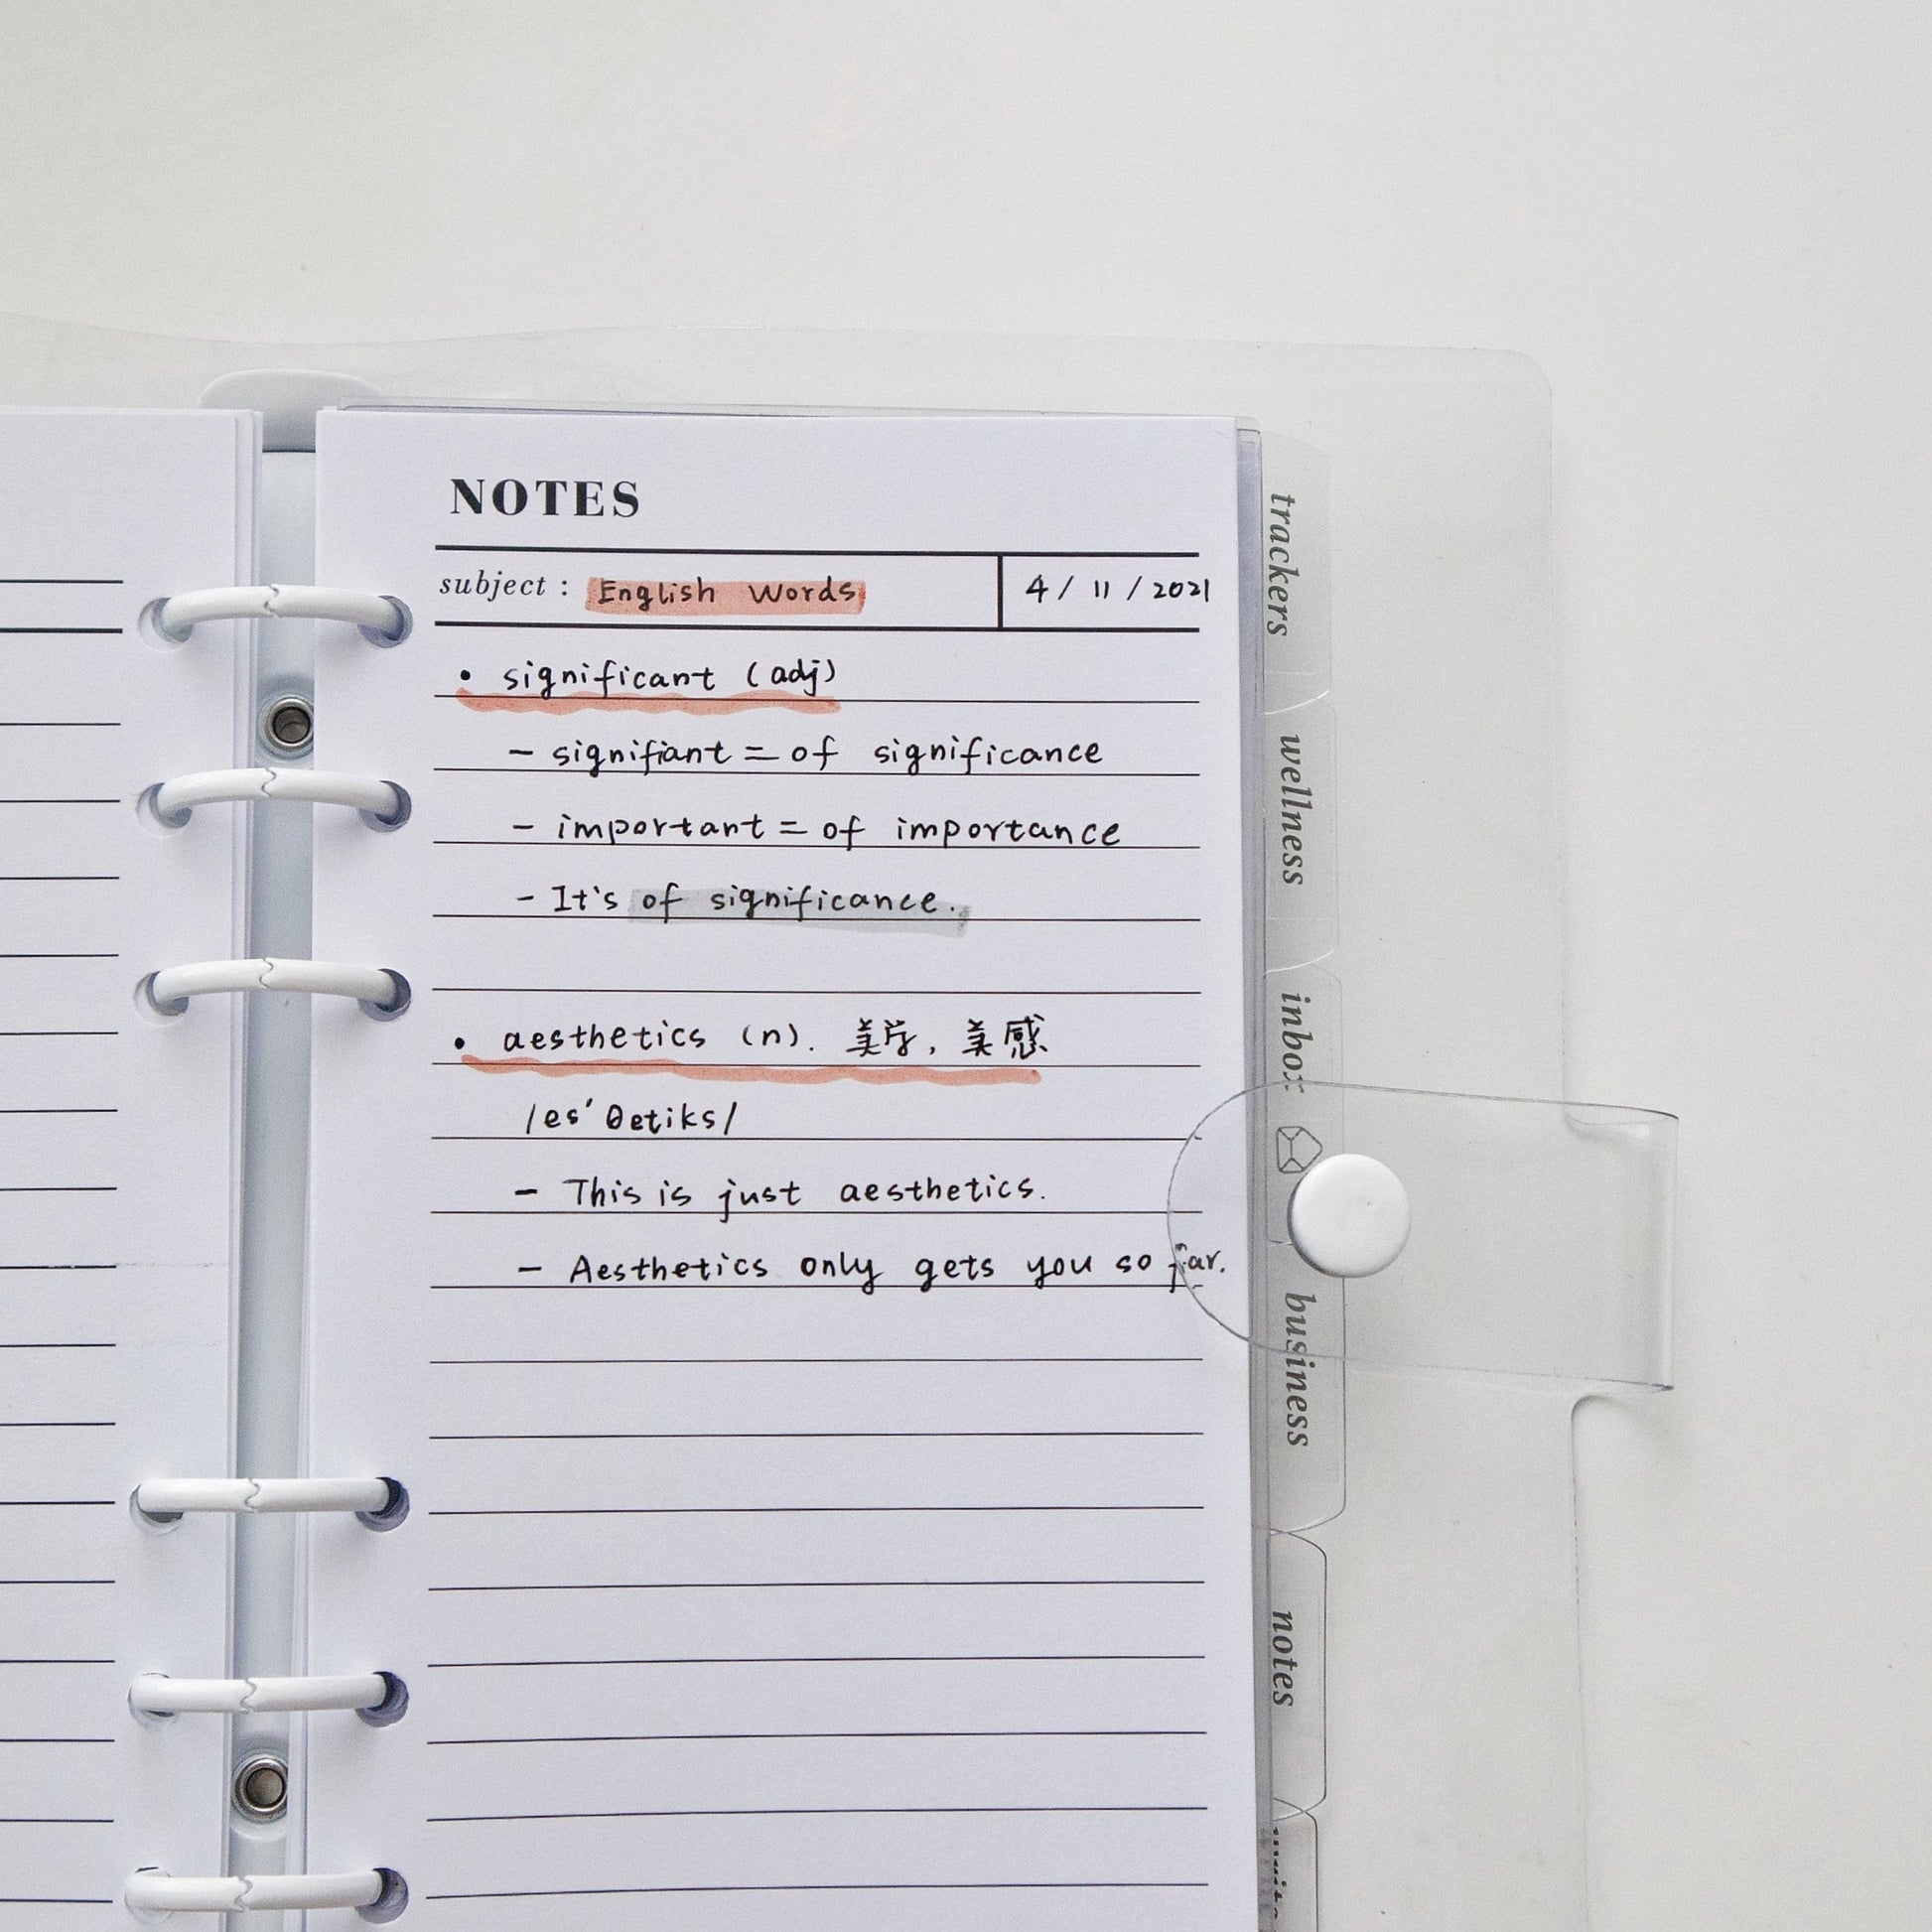 NOTES
subject : English Words 4 / 11 / 2021
• significant (adj)
- signifiant = of significance
- important = of importance
- It's of significance.
• aesthetics (n). 美学, 美感
/es'θetiks/
- This is just aesthetics.
- Aesthetics only gets you so far.
trackers
wellness
inbox
business
notes